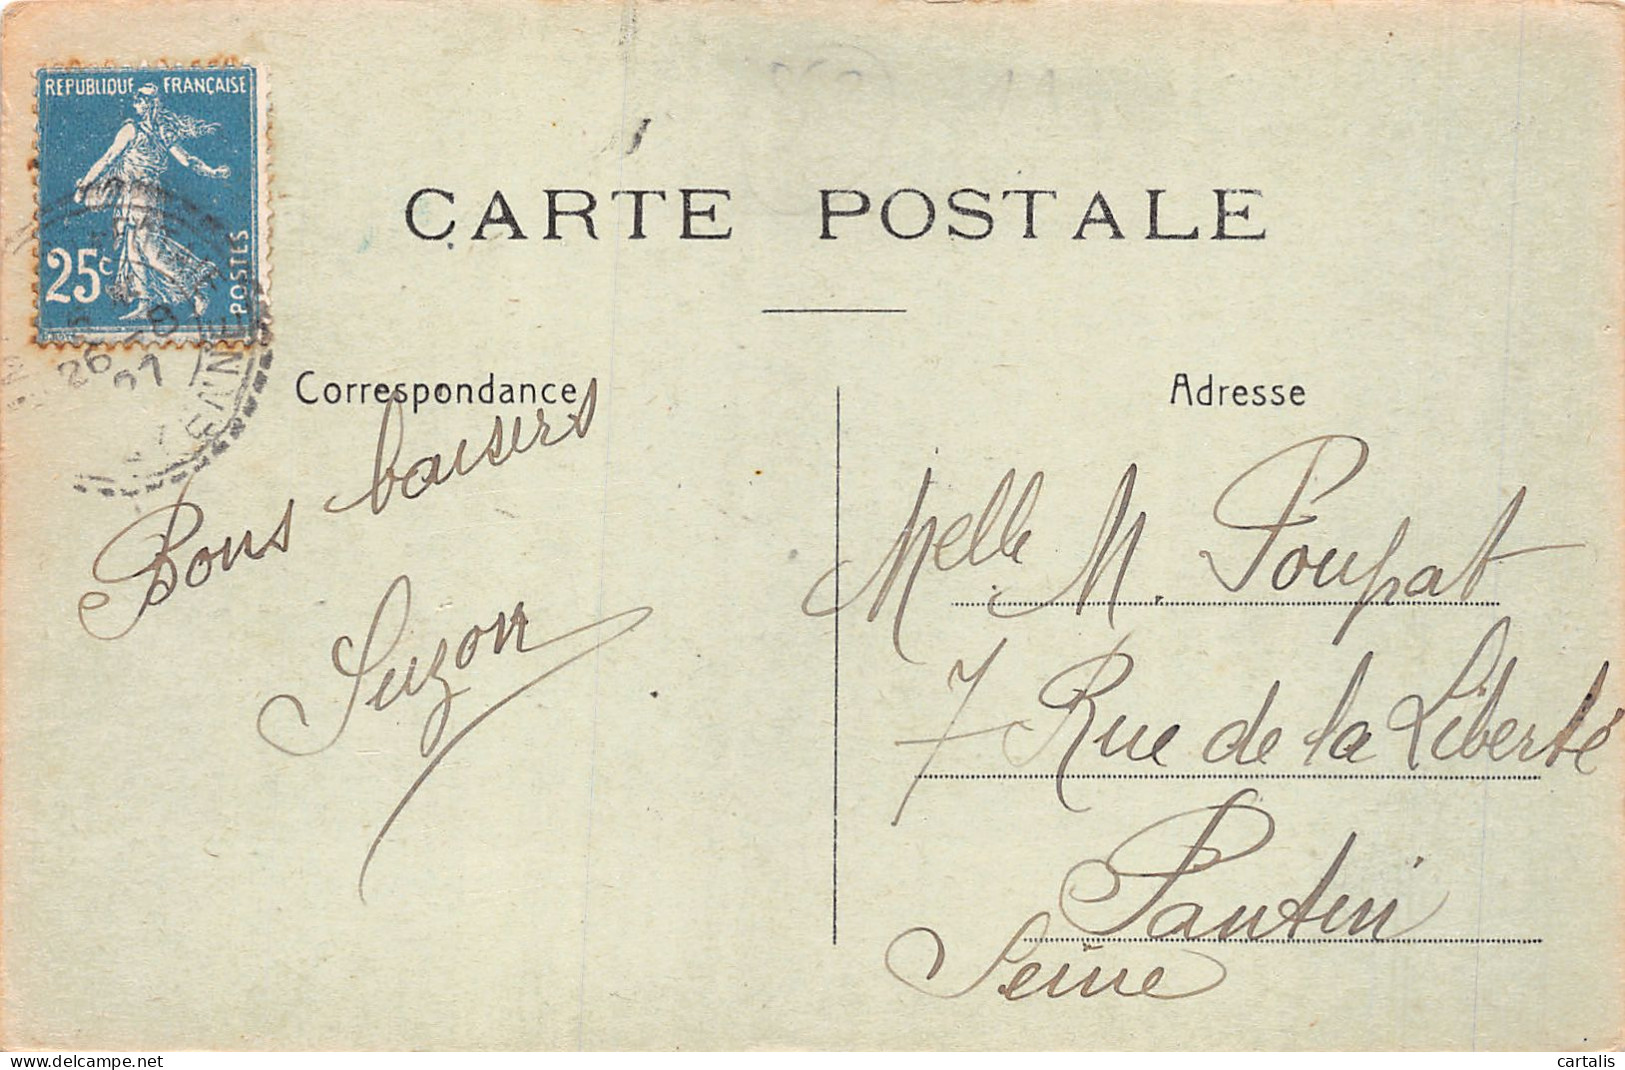 REPUBLIQUE FRANÇAISE
25c
POSTES
26 - 8
27
SEINE
CARTE POSTALE
Correspondance
Adresse
Bons baisers
Suzon
Melle M. Poupat
7 Rue de la Liberté
Pantin
Seine
cartalis